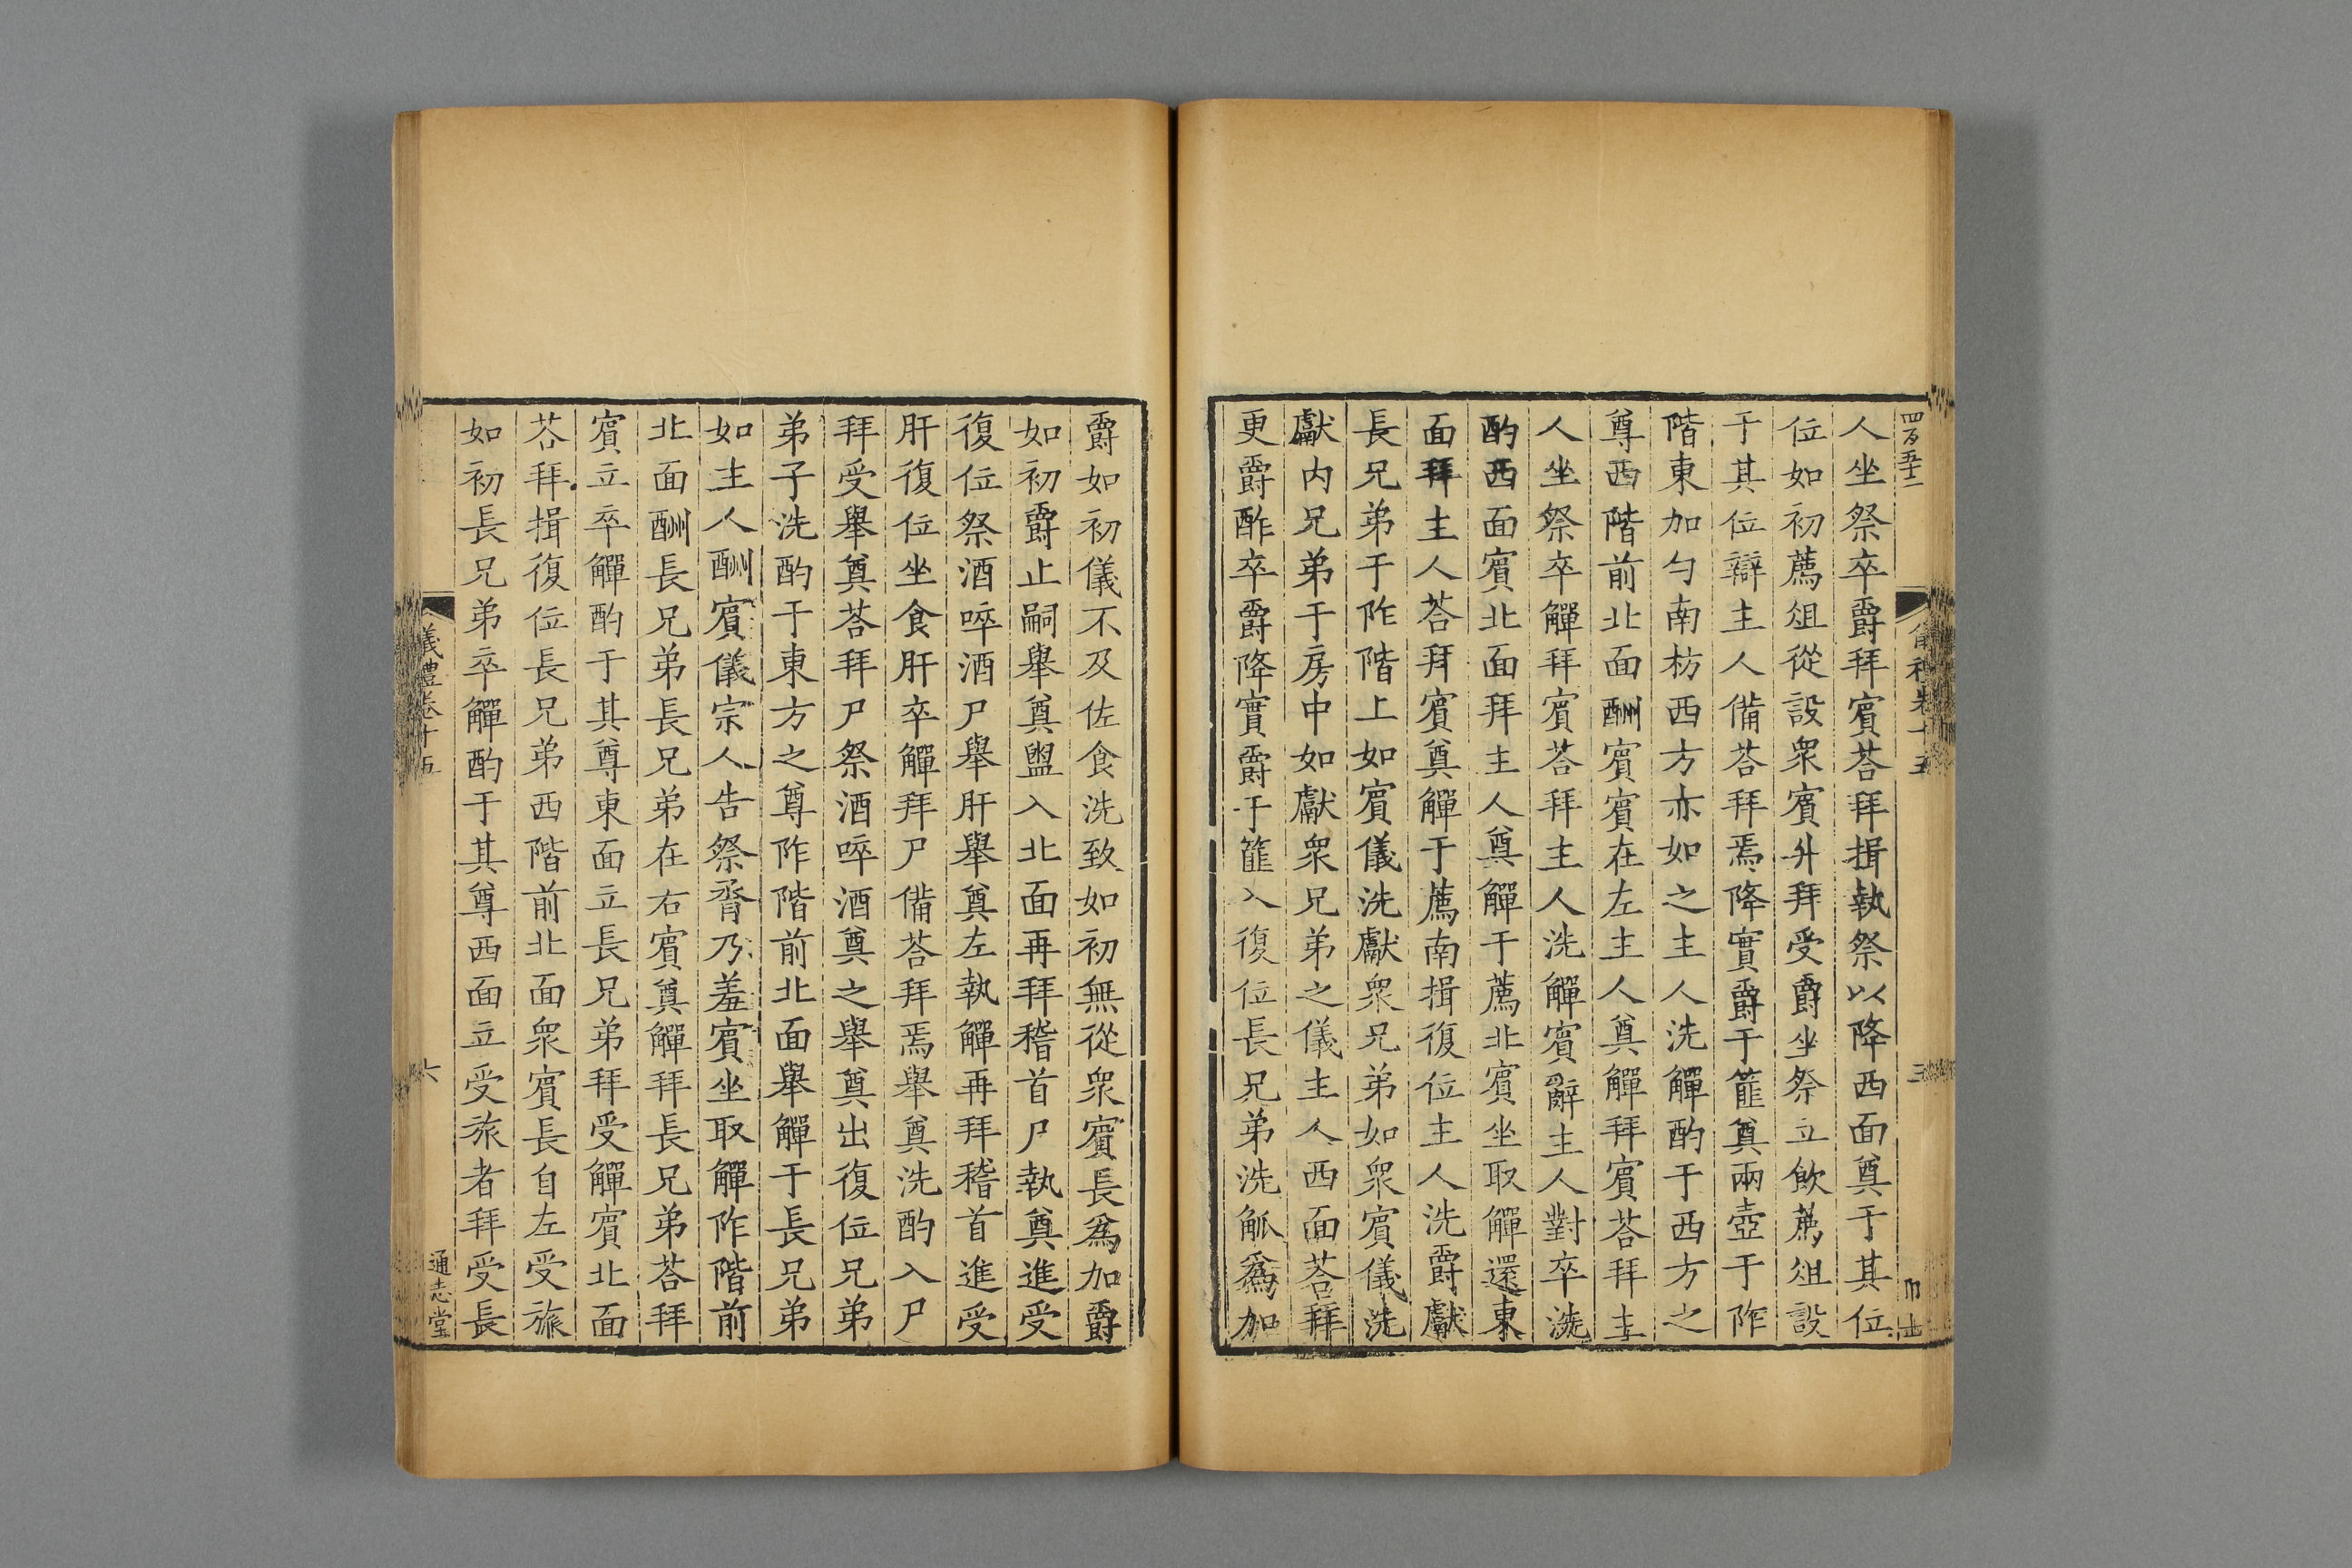 四百五十二
人坐祭卒爵拜賓荅拜揖執祭以降西面奠于其位
位如初薦俎從設衆賓升拜受爵坐祭立飲薦俎設
于其位辯主人備荅拜焉降實爵于篚奠兩壺于阼
階東加勺南枋西方亦如之主人洗觶酌于西方之
尊西階前北面酬賓賓在左主人奠觶拜賓荅拜主
人坐祭卒觶拜賓荅拜主人洗觶賓辭主人對卒洗
酌西面賓北面拜主人奠觶于薦北賓坐取觶還東
面拜主人荅拜賓奠觶于薦南揖復位主人洗爵獻
長兄弟于阼階上如賓儀洗獻衆兄弟如衆賓儀洗
獻内兄弟于房中如獻衆兄弟之儀主人西面荅拜
更爵酢卒爵降實爵于篚入復位長兄弟洗觚爲加
爵如初儀不及佐食洗致如初無從衆賓長爲加爵
如初爵止嗣舉奠盥入北面再拜稽首尸執奠進受
復位祭酒啐酒尸舉肝舉奠左執觶再拜稽首進受
肝復位坐食肝卒觶拜尸備荅拜焉舉奠洗酌入尸
拜受舉奠荅拜尸祭酒啐酒奠之舉奠出復位兄弟
弟子洗酌于東方之尊阼階前北面舉觶于長兄弟
如主人酬賓儀宗人告祭脀乃羞賓坐取觶阼階前
北面酬長兄弟長兄弟在右賓奠觶拜長兄弟荅拜
賓立卒觶酌于其尊東面立長兄弟拜受觶賓北面
荅拜揖復位長兄弟西階前北面衆賓長自左受旅
如初長兄弟卒觶酌于其尊西面立受旅者拜受長
儀禮卷十五
六
通志堂